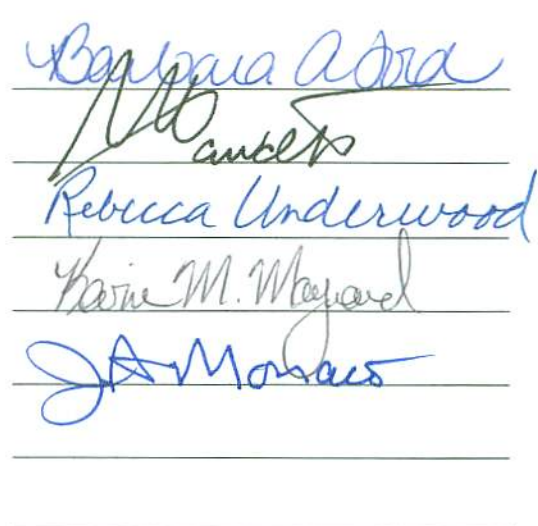 Barbara A Ford
Rebecca Underwood
Karin M. Maynard
J A Monaco